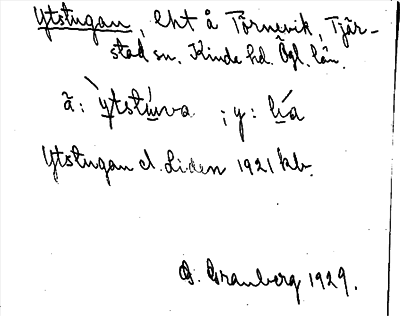 Ytstugan, lht å Törnevik, Tjär-
stad sn. Kinda hd. Ögl. län.
ã: ỳtstúwa ; y: lía
Ytstugan el. Liden 1921 kb.
G. Granberg 1929.